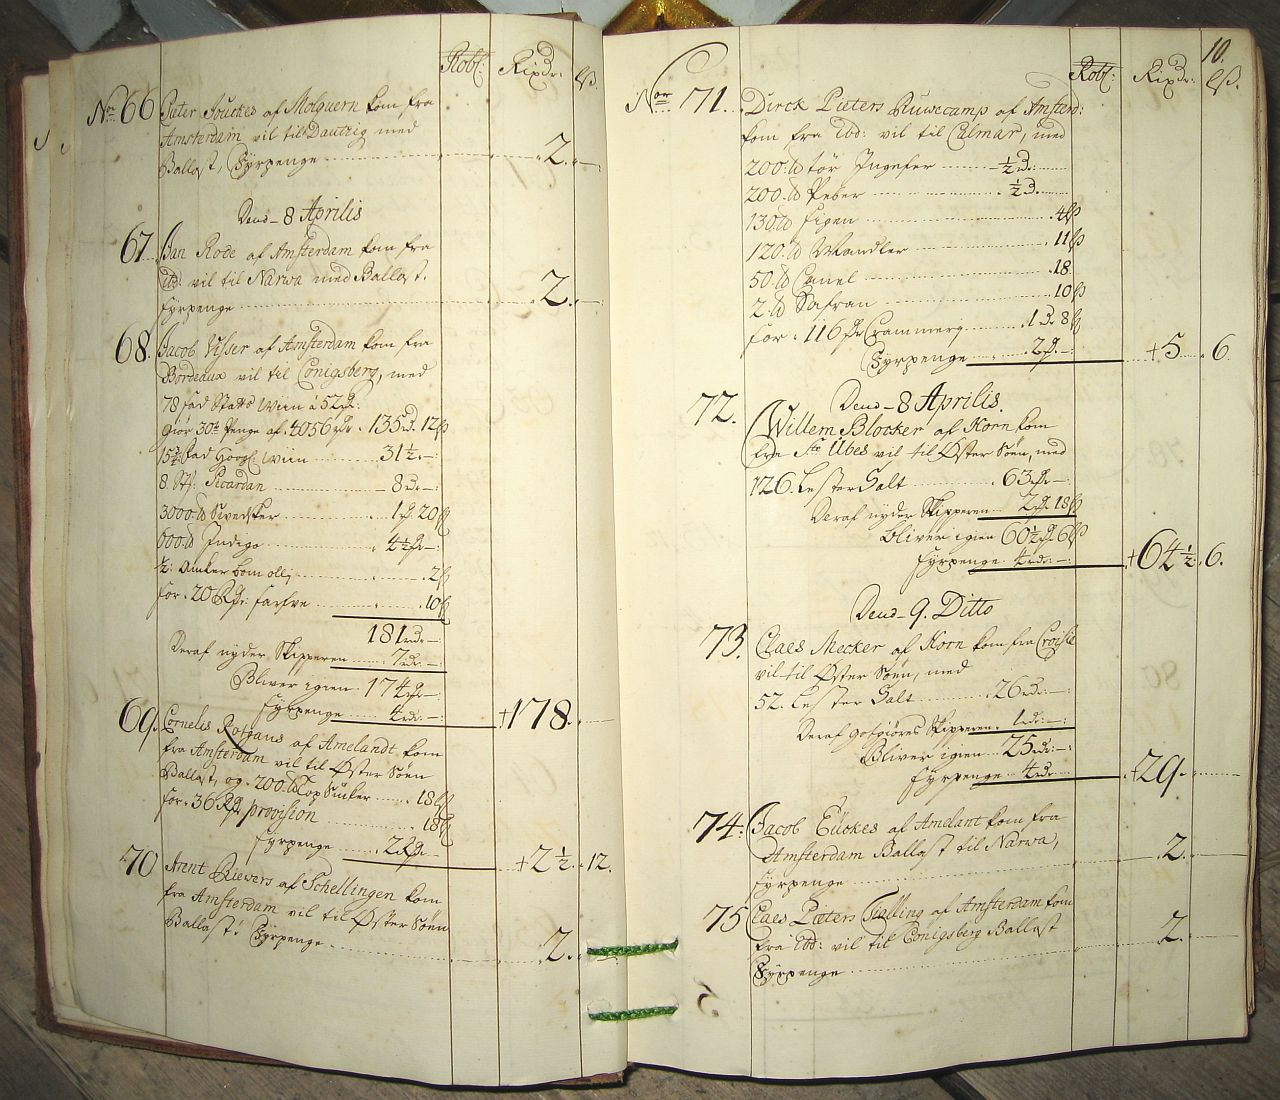 Robl: Rixdr: ß
No 66 Pieter Fouckes af Molquern kom fra
Amsterdam vil til Dantzig med
Ballast, Fyrpenge 2.
Dend 8 Aprilis
67. Jan Rode af Amsterdam kom fra
ibd: vil til Narwa med Ballast.
Fyrpenge 2.
68. Jacob Visser af Amsterdam kom fra
Bordeaux vil til Conigsberg, med
78 fad Stats Wiin á 52
Giör 30te Penge af 4056 135 12ß
15½ fad Hoogl: Wiin 31½
8. Picardan 8
3000 lb Svedsker 1 20ß
600 lb Indigo 4½
½: Amker bom olj 2ß
for 20 farfve 10ß
181 rd
Deraf nyder Skipperen 7 rd
Bliver igien 174
Fyrpenge 4 rd +178.
69. Cornelis af Amelandt kom
fra Amsterdam vil til Öster Söen
Ballast, og 200 lb Top Suker 18ß
for 36 provision 18ß
Fyrpenge 2 +2½ 12.
70 Arent Rievers af Schellingen kom
fra Amsterdam vil til Öster Söen
Ballast: Fyrpenge 2.
10.
Robl: Rixdr: ß.
Nor 71. Dirck Pieters Ruwecamp af Amsterd:
kom fra ibd: vil til Calmar, med
200 lb tör Ingefer ½
200 lb Peber ½
130 lb figen 4ß
120 lb Mandler 11ß
50 lb Canel 18
2 lb Safran 10ß
for 116 Crammerg 1 8ß
Fyrpenge 2 +5 6.
Dend 8 Aprilis.
72. Willem Blocker af Horn kom
fra Ste Ubes vil til Öster Söen, med
126. Lester Salt 63
Deraf nyder Skipperen 2 18ß
bliver igien 60½ 6ß
fyrpenge 4 rd +64½ 6.
Dend 9. Ditto
73. Claes Mecker af Horn kom fra Croisil
vil til Öster Söen, med
52. Lester Salt 26 rd
Deraf Skipperen 1 rd
Bliver igien 25 rd
fyrpenge 4 rd +29.
74: Jacob Euckes af Amelant kom fra
Amsterdam Ballast til Narwa,
fyrpenge 2.
75 Claes Pieters Stalling af Amsterdam kom
fra ibd: vil til Conigsberg Ballast
Fyrpenge 2.